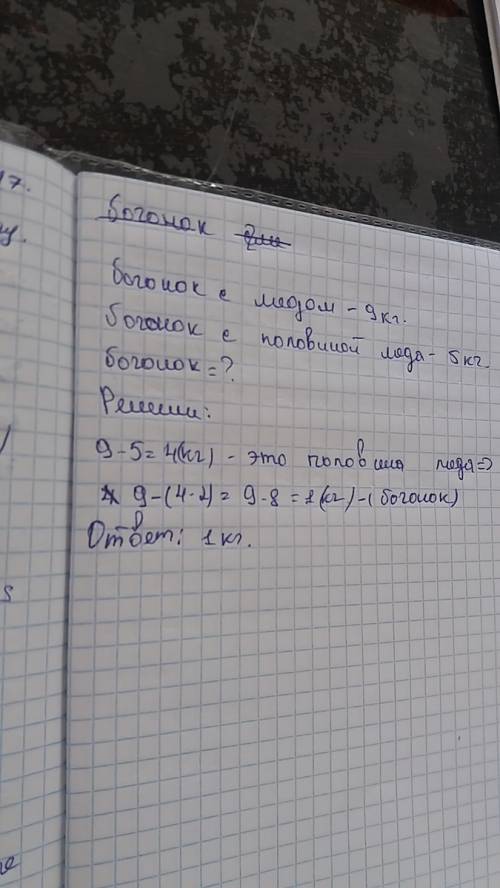 17.
Богонок
Богонок с медом - 9 кг.
Богонок с половиной меда - 5 кг
Богонок = ?
Решени:
9 - 5 = 4 (кг) - это половина меда =>
9 - (4 · 2) = 9 - 8 = 1 (кг) - (богонок)
Ответ: 1 кг.